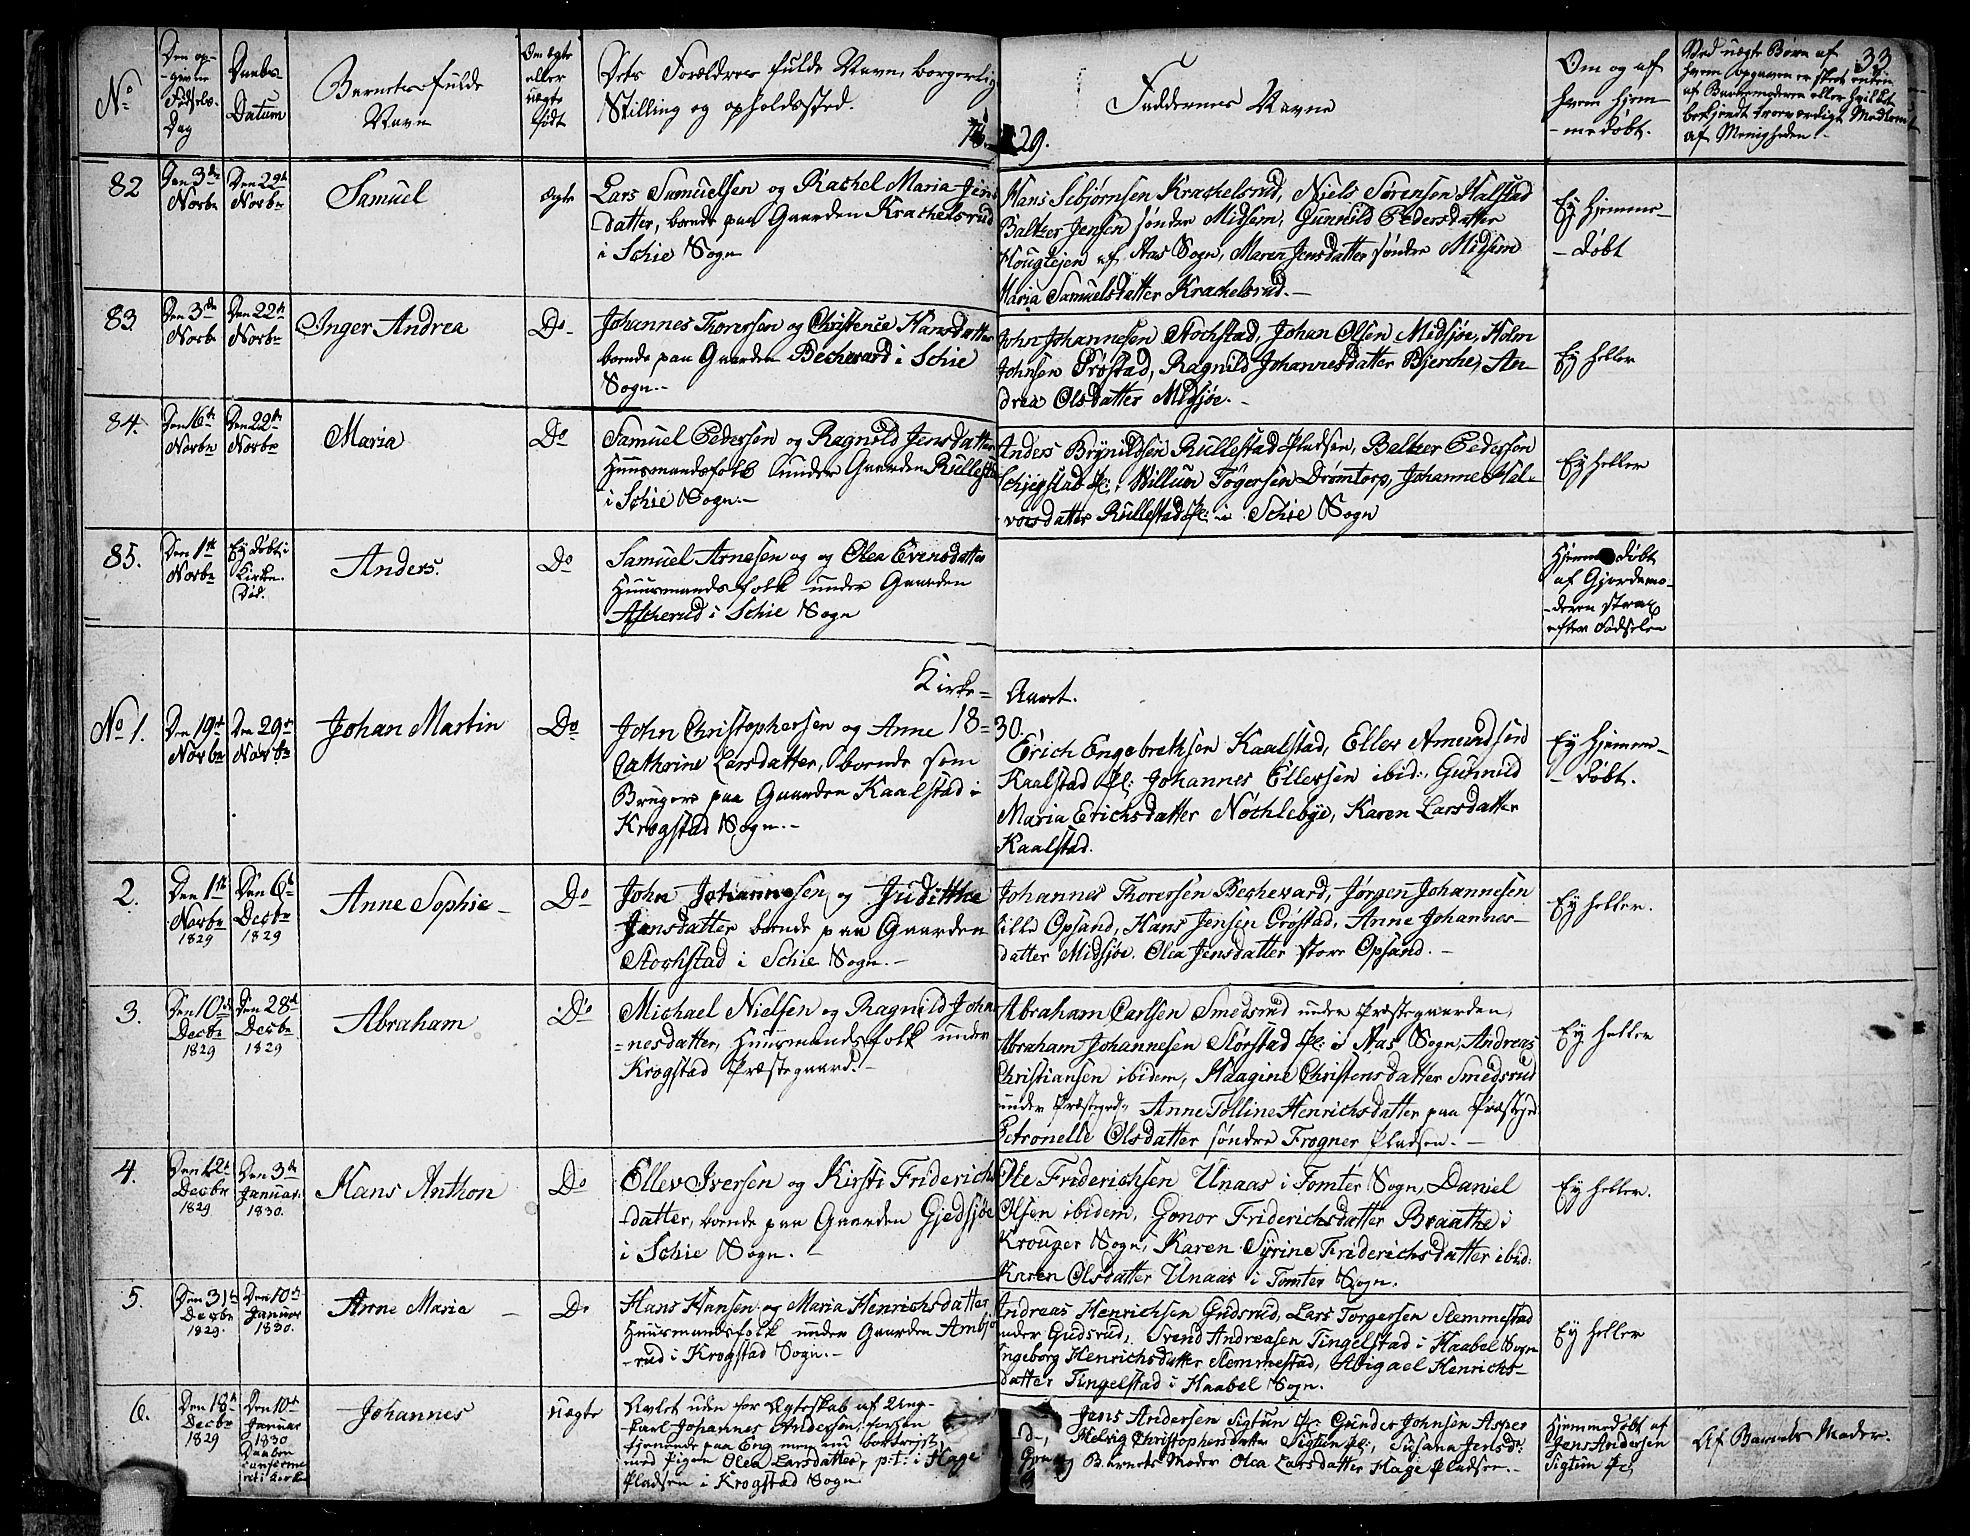 33
No
Den op-
-givne
Fødsels-
Dag
Daabs-
Datum
Barnets fulde
Navn
Om ægte
eller
uægte
født
Dets Forældres fulde Navn, borgerlig
Stilling og opholdssted.
Faddernes Navne
Om og af
hvem hjem-
-medøbt.
Ved uægte Børn af
hvem opgaven er skeet enten
af Barnemoderen eller hvilket
bekjendt troværdigt Medlem
af Menigheden
29.
82
Den 3de
Novbr
Den 22de
Novbr
Samuel
ægte
Lars Samuelsen og Rachel Maria Jens
datter, boende paa Gaarden Krachelsrud
i Schie Sogn
Hans Sebjørnsen Krachelsrud, Niels Sørensen Halstad
Baltzer Jensen søndre Midsem, Gunnild Pedersdatter
af Aas Sogn, Maren Jensdatter søndre Midsem
Maria Samuelsdatter Krachelsrud.-
Ey hjemme-
-døbt
83.
Den 3de
Novbr
Den 22de
Novbr
Inger Andrea
Do
Johannes Thoresen og Christence Hansdatter
boende paa Gaarden Bechevard i Schie
Sogn.-
John Johannesen Stochstad, Johan Olsen Midsjøe, Holm
Johnsen Prøstad, Ragnild Johannesdatter Bjerche, An-
drea Olsdatter Midsjøe.-
Ey heller
84.
Den 16de
Novbr
Den 22de
Novbr
Maria
Do
Samuel Pedersen og Ragnild Jensdatter
Huusmandsfolk under Gaarden Rullesta
i Schie Sogn.-
Anders Brynildsen Rullestad Pladsen, Baltzer Pedersen
Schjegstad Pl:, Willum Tøgersen Drømtorp, Johanne Hal-
vorsdatter Rullestad Pl: i Schie Sogn
Ey heller
85.
Den 1ste
Novbr
Ey døbt i
Kirken.
Død.
Anders.
Do
Samuel Arnesen og og Olea Evensdatter
Huusmandsfolk under Gaarden
Ascherud i Schie Sogn
Hjemmedøbt
af Gjordemo-
-deren strax
efter Fødselen
Kirke-
Aaret.
18-
30.
No 1.
Den 19de
Novbr
Den 29de
Novbr
Johan Martin
Do
John Christophersen og Anne
Cathrine Larsdatter, boende som
Bruger paa Gaarden Kaalstad i
Krogstad Sogn.-
Erich Engebrethsen Kaalstad, Ellev Amundsen
Kaalstad Pl: Johannes Ellefsen ibid:, Gunnild
Maria Erichsdatter Nøchlebye, Karen Larsdatter
Kaalstad.
Ey hjemme-
-døbt.
2.
Den 1ste
Novbr
1829
Den 6te
Decbr
1829
Anne Sophie
Do
John Johannesen og Juditthe
Jensdatter boende paa Gaarden
Stochstad i Schie Sogn.-
Johannes Thoresen Bechevard, Jørgen Johannesen
lille Opsand, Hans Jensen Prøstad, Anne Johannes-
datter Midsjøe. Olea Jensdatter store Opsand.-
Ey heller.
3.
Den 10de
Decbr
1829
Den 28de
Decbr
1829
Abraham
Do
Michael Nielsen og Ragnild Johan
-nesdatter, Huusmandsfolk under
Krogstad Præstegaard.-
Abraham Carlsen Smedsrud under Præstegaarden,
Abraham Johannesen Storstad Pl: i Aas Sogn, Andreas
Christiansen ibidem, Haagine Christensdatter Smedsrud
under Præstegrd, Anne Tolline Henrichsdatter paa Præstgrd
Petronelle Olsdatter søndre Frogner Pladsen.-
Ey heller
4.
Den 12te
Decbr
1829
Den 3de
Januar.
1830.
Hans Anthon
Do
Ellev Iversen og Kirsti Friderichs
-datter, boende paa Gaarden Gjedsjøe
i Schie Sogn.-
Ole Friderichsen Unaas i Tomter Sogn, Daniel
Olsen ibidem, Gonor Friderichsdatter Braathe i
Krouger Sogn, Karen Syrine Friderichsdatter ibid:
Karen Olsdatter Unaas i Tomter Sogn.
Ey heller.
5.
Den 31te
Decbr
1829.
Den 10de
Januar
1830.
Anne Marie
Do
Hans Hansen og Maria Henrichsdatter
Huusmandsfolk under Gaarden Ambjø
-rud i Krogstad Sogn.-
Andreas Henrichsen Gudsrud, Lars Torgersen Slemmestad
under Gudsrud, Svend Andreasen Tingelstad i Haabel Sogn
Ingeborg Henrichsdatter Slemmestad, Abigael Henrichs-
datter Tingelstad i Haabel Sogn.
Ey heller
6.
Den 18de
Decbr
1829
Den 10de
Januar
1830
Daaben
confirme-
ret i Kirken
Johannes
uægte
Avlet uden for Ægteskab af Ung-
-karl Johannes Andersen, forhen
tjenende paa Eng men nu bortreist,
med Pigen Olea Larsdatter, p: t: i Hage
Pladsen i Krogstad Sogn
Jens Andersen Sigtun Pl: Gunder Johnsen Asper
Helvig Christophersdatter Sigtun Pl:, Susana Jensd:
og Barnets Moder Olea Larsdatter Hage Pladsen.-
Hjemmedøbt af
Jens Andersen
Sigtun Pl:
Af Barnets Moder.